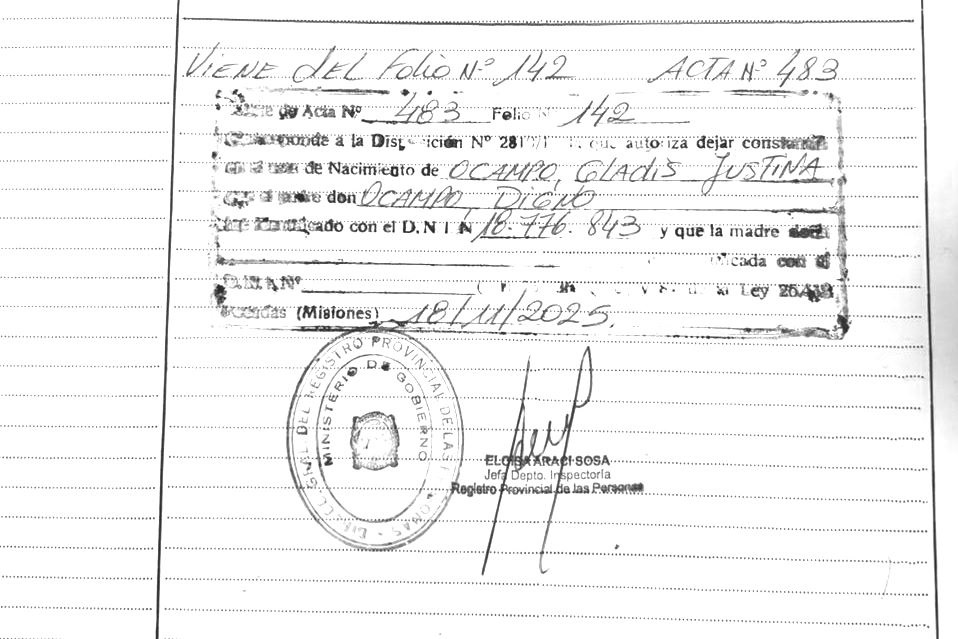 VIENE DEL Folio Nº 142 ACTA Nº 483
de Acta Nº 483 Folio Nº 142
a la Disposición Nº que autoriza dejar constancia
en el de Nacimiento de OCAMPO, GLADIS JUSTINA
que el padre don OCAMPO, DIGNO
con el D.N.I Nº 18.776.843 y que la madre
con el
D.N.I Nº Ley 26.413
Posadas (Misiones) 18/11/2025.
REGISTRO PROVINCIAL DE LAS PERSONAS
MINISTERIO DE GOBIERNO
ELOISA ARACI SOSA
Jefa Depto. Inspectoría
Registro Provincial de las Personas